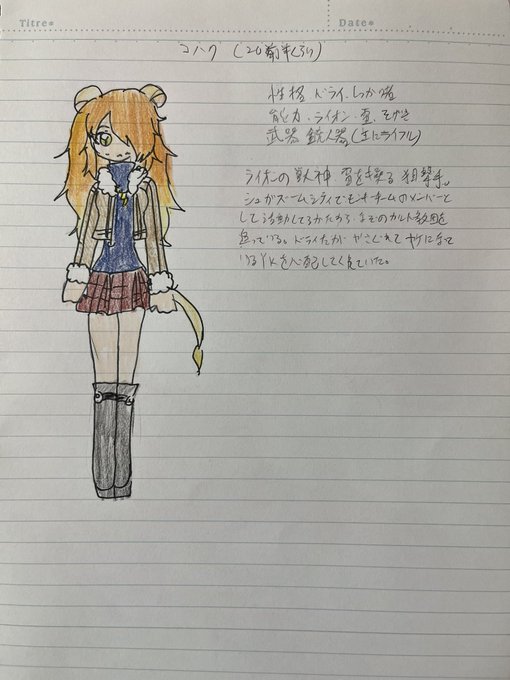 Titre* Date*
コハク (20前半くらい)
性格 ドライ、しっかり者
能力 ライオン、雷、そげき
武器 銃火器(主にライフル)
ライオンの獣神 雷を操る狙撃手。
シュガズームシティでモンキチームのメンバーと
して活動してるかたわら、カルト教団を
追っている。ドライだが やさぐれて ヤケになって
いるYKを心配してよく見ていた。